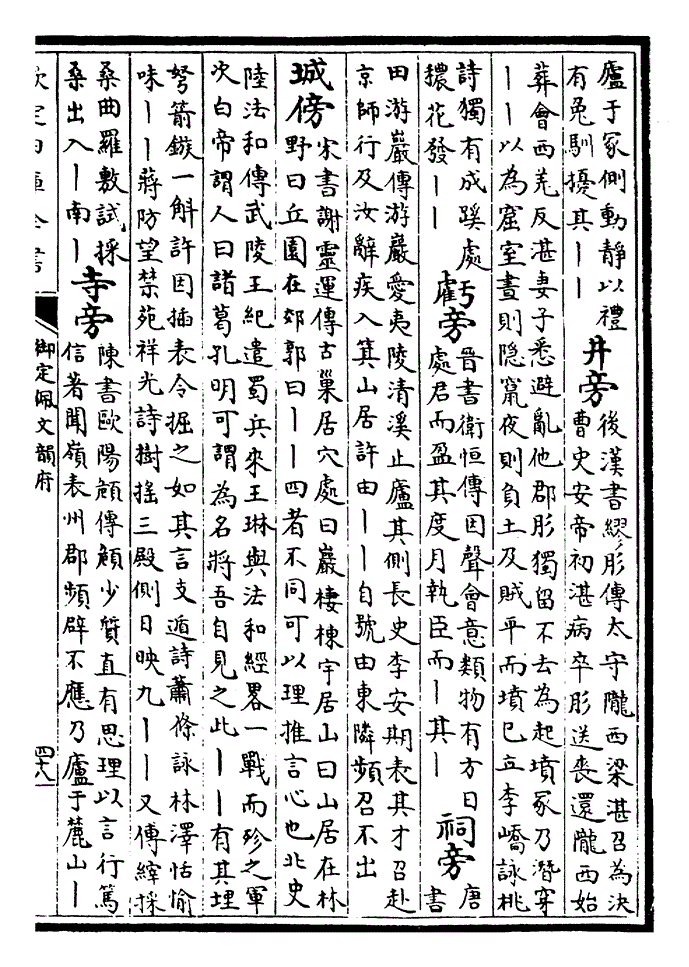 廬于冢側動靜以禮
有兔馴擾其丨丨
井旁
後漢書繆彤傳太守隴西梁湛召為決
曹史安帝初湛病卒彤送喪還隴西始
葬會西羌反湛妻子悉避亂他郡彤獨留不去為起墳冢乃潛穿
丨丨以為窟室晝則隐竄夜則負土及賊平而墳已立李嶠詠桃
詩獨有成蹊處
穠花發丨丨
虧旁
晉書衛恒傳因聲會意類物有方日
處君而盈其度月執臣而丨其丨
祠旁
唐
書
田游巖傳游巖愛夷陵清溪止廬其側長史李安期表其才召赴
京師行及汝辭疾入箕山居許由丨丨自號由東隣頻召不出
城傍
宋書謝靈運傳古巢居穴處曰巖棲棟宇居山曰山居在林
野曰丘園在郊郭曰丨丨四者不同可以理推言心也北史
陸法和傳武陵王紀遣蜀兵來王琳與法和經畧一戰而殄之軍
次白帝謂人曰諸葛孔明可謂為名將吾自見之此丨丨有其埋
弩箭鏃一斛許因插表令掘之如其言支遁詩蕭條詠林澤恬愉
味丨丨蔣防望禁苑祥光詩樹搖三殿側日映九丨丨又傅縡採
桑曲羅敷試採
桑出入丨南丨
寺旁
陳書歐陽頠傳頠少質直有思理以言行篤
信著聞嶺表州郡頻辟不應乃廬于麓山丨
欽定四庫全書
御定佩文韻府
四十八